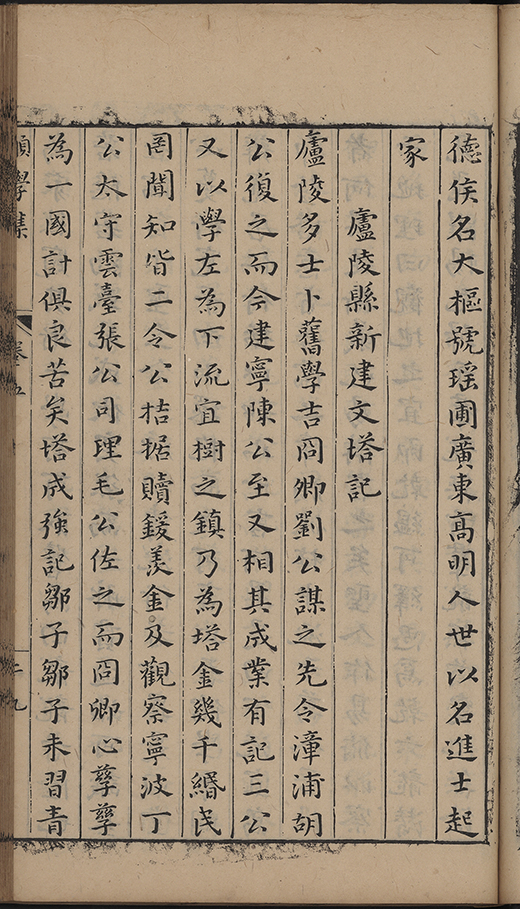 德侯名大樞號瑶圃廣東高明人世以名進士起
家
廬陵縣新建文塔記
廬陵多士卜舊學吉冏卿劉公謀之先令漳浦胡
公復之而今建寧陳公至又相其成業有記三公
又以學左為下流宜樹之鎮乃為塔金幾千緡民
罔聞知皆二令公拮据贖鍰羨金及觀察寧波丁
公太守雲臺張公司理毛公佐之而冏卿心孳孳
為一國計俱良苦矣塔成強記鄒子鄒子未習青
願學集
卷五